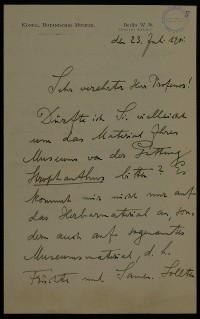 Königl. Botanisches Museum.
Berlin W. 57
den 23. Juli 1901.
Sehr verehrter Herr Professor!
Dürfte ich Sie vielleicht
um das Material Ihres
Museums von der Gattung
Strophanthus bitten? Es
kommt mir nicht nur auf
das Herbarmaterial an, son
dern auch auf sogenanntes
Museumsmaterial, d. h.
Früchte und Samen. Sollten